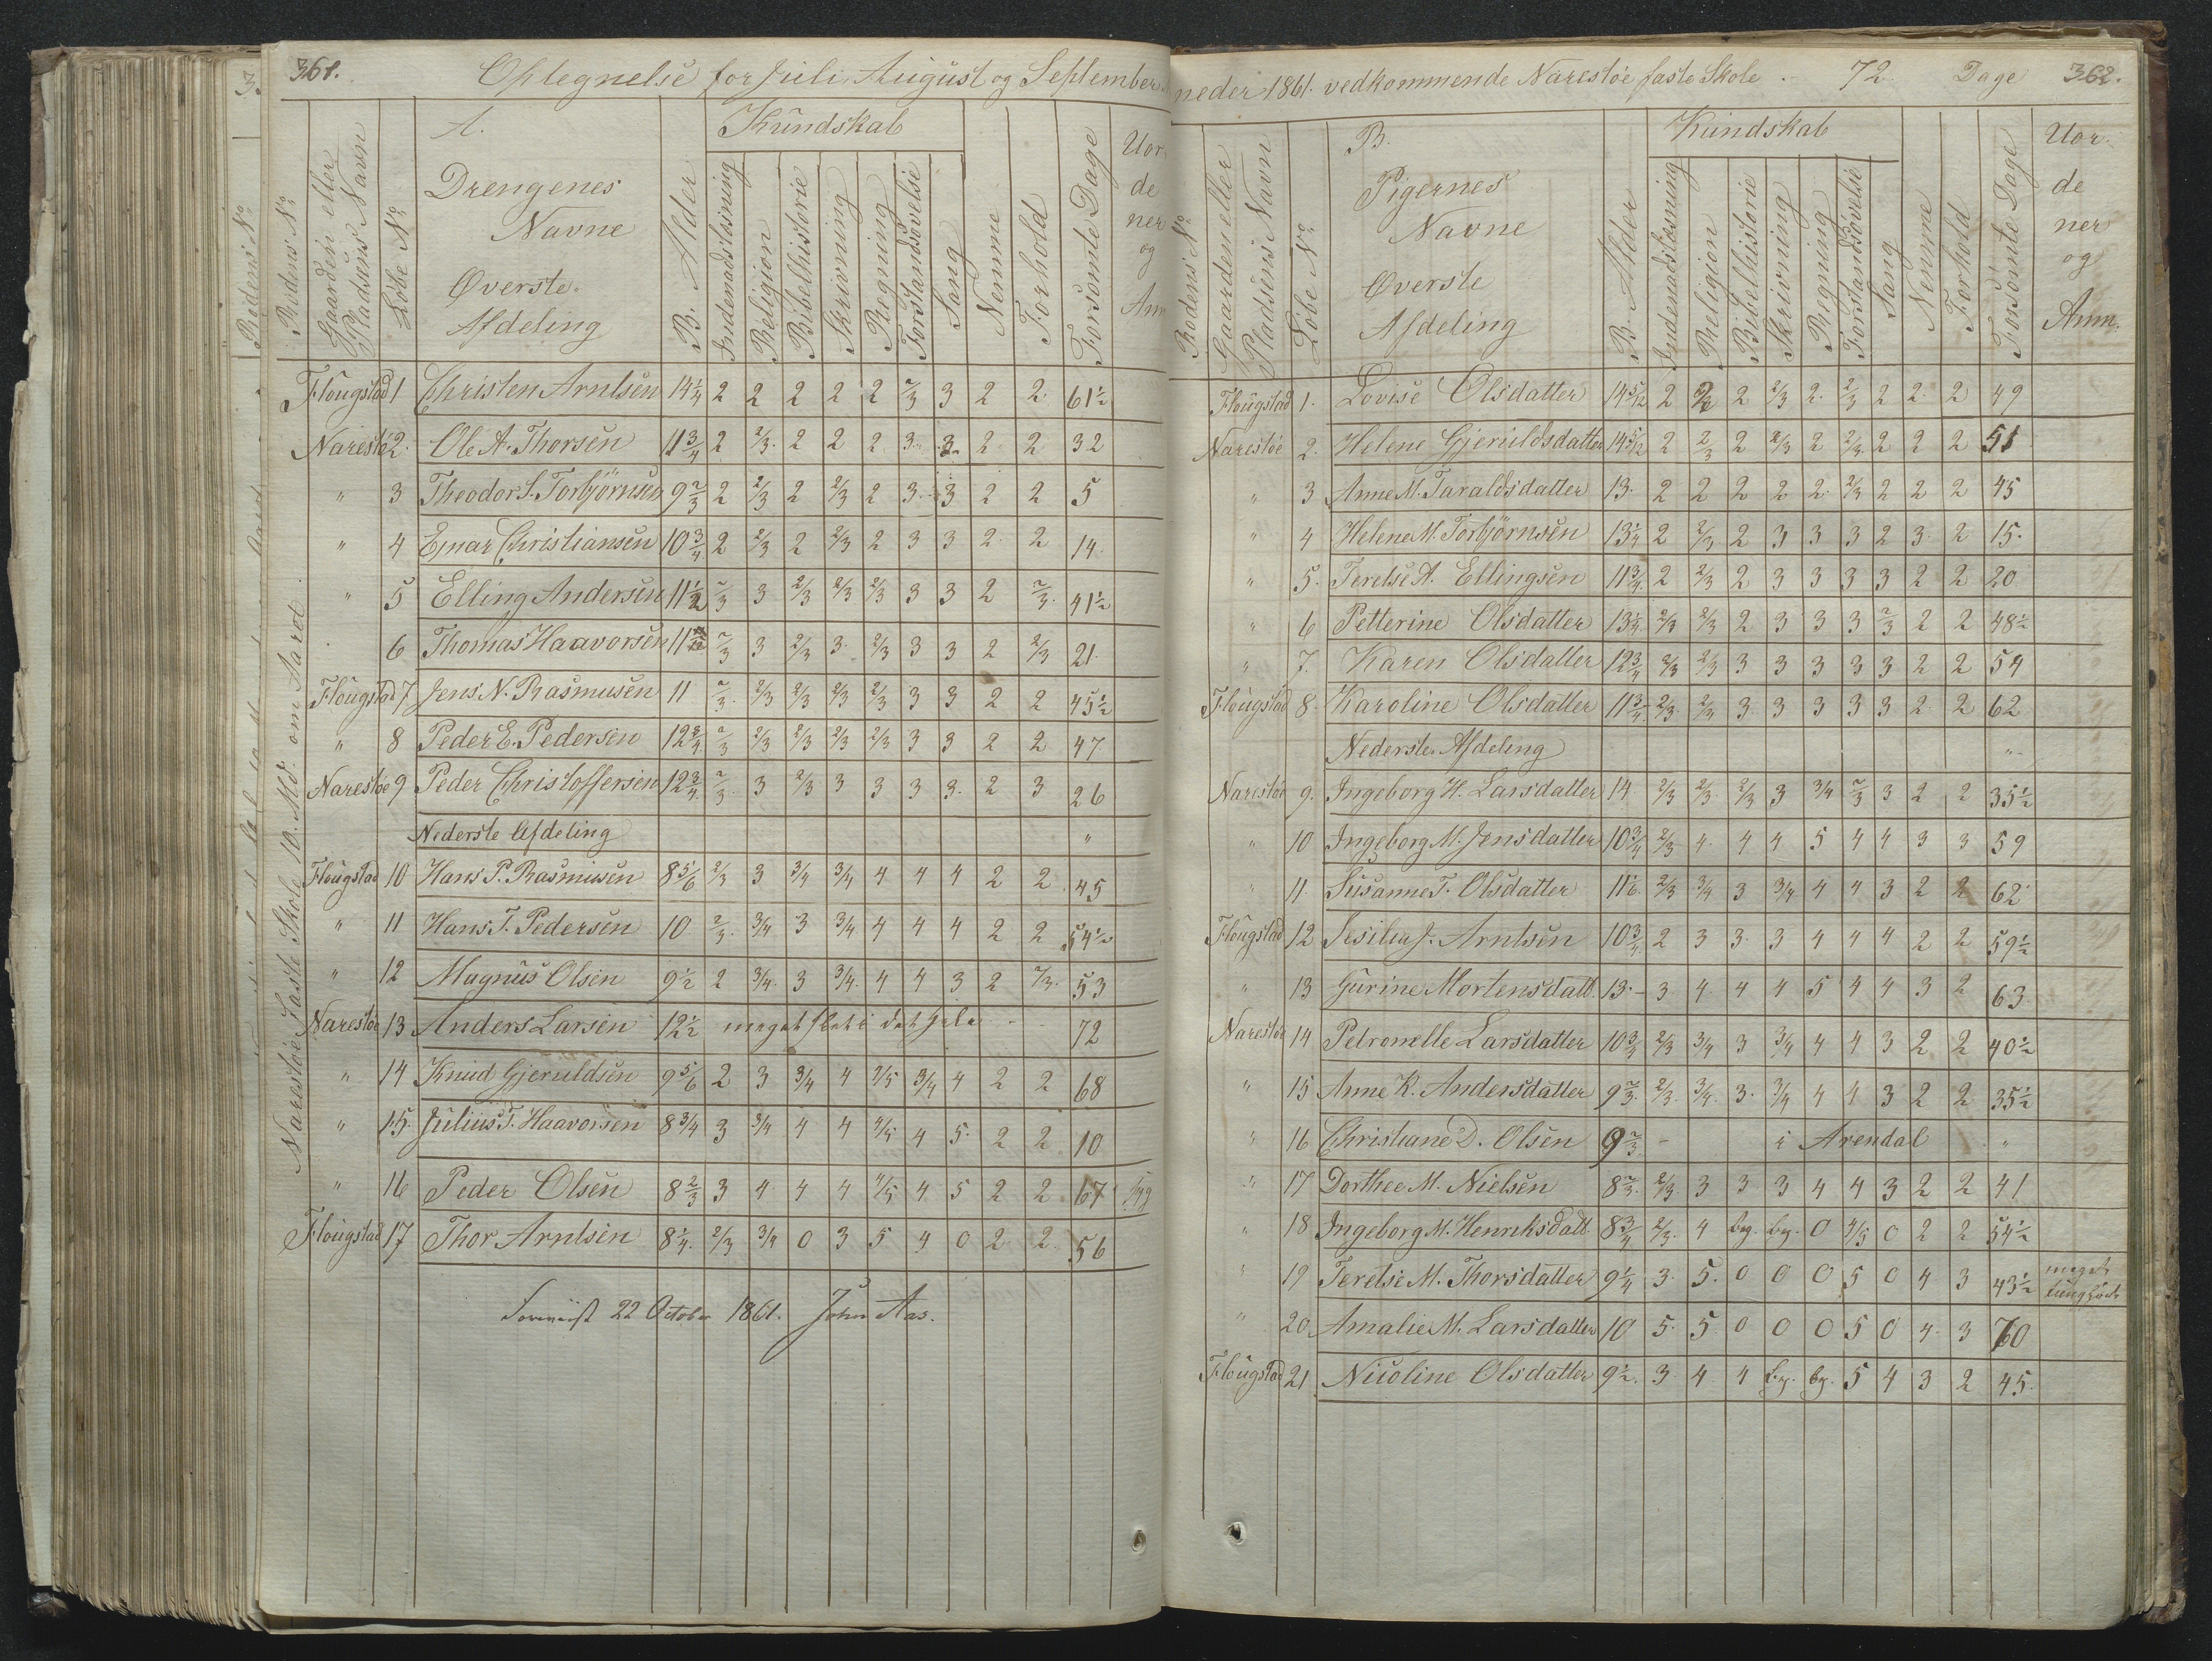 361.
Optegnelse for Juli, August og September
Rodens No
Gaarden eller Pladsens Navn
Löbe No
A. Drengenes Navne Øverste Afdeling
B. Alder
Kundskab
Indenadsläsning
Religion
Bibelhistorie
Skrivning
Regning
Forstandsövelse
Sang
Nemme
Forhold
Forsömte Dage
Uor
de
ner
og
Anm
Narestöe Faste Skole 10. Md. om Aaret.
Flougstad 1 Christen Arntsen 14 1/4 2 2 2 2 2 2/3 3 2 2 61 1/2
Narestöe 2. Ole A. Thorsen 11 3/4 2 2/3 2 2 2 3 3 2 2 32
" 3 Theodor S. Torbjörnsen 9 2/3 2 2/3 2 2/3 2 3 3 2 2 5
" 4 Ejnar Christiansen 10 3/4 2 2/3 2 2/3 2 3 3 2 2 14
" 5 Elling Andersen 11 1/2 2/3 3 2/3 2/3 2/3 3 3 2 2/3 41 1/2
6 Thomas Haavorsen 11 2/3 3 2/3 3 2/3 3 3 2 2/3 21
Flougstad 7 Jens N. Rasmusen 11 2/3 2/3 2/3 2/3 2/3 3 3 2 2 45 1/2
" 8 Peder E. Pedersen 12 3/4 2/3 2/3 2/3 2/3 2/3 3 3 2 2 47
Narestöe 9 Peder Christoffersen 12 3/4 2/3 3 2/3 3 3 3 3 2 3 26
Nederste Afdeling "
Flougstad 10 Hans P. Rasmusen 8 5/6 2/3 3 3/4 3/4 4 4 4 2 2 45
" 11 Hans T. Pedersen 10 2/3 3/4 3 3/4 4 4 4 2 2 54 1/2
" 12 Magnus Olsen 9 1/2 2 3/4 3 3/4 4 4 3 2 2/3 53
Narestöe 13 Anders Larsen 12 1/2 meget slet i det hele 72
" 14 Knud Gjeruldsen 9 5/6 2 3 3/4 4 4/5 3/4 4 2 2 68
" 15 Julius T. Haavorsen 8 3/4 3 3/4 4 4 4/5 4 5 2 2 10
" 16 Peder Olsen 8 2/3 3 4 4 4 4/5 4 5 2 2 67
Flougstad 17 Thor Arntsen 8 1/4 2/3 3/4 0 3 5 4 0 2 2 56
22 October 1861. John Aas.
neder 1861. vedkommende Narestöe faste Skole. 72 Dage 362.
Rodens No
Gaarden eller Pladsens Navn
Löbe No
B. Pigernes Navne Øverste Afdeling
B. Alder
Kundskab
Indenadsläsning
Religion
Bibelhistorie
Skrivning
Regning
Forstandsövelse
Sang
Nemme
Forhold
Forsömte Dage
Uor.
de
ner
og
Anm.
Flougstad 1. Lovise Olsdatter 14 5/12 2 2 2 2/3 2 2/3 2 2 2 49
Narestöe 2. Helene Gjeruldsdatter 14 5/12 2 2/3 2 2/3 2 2/3 2 2 2 51
" 3 Anne M. Taraldsdatter 13 2 2 2 2 2 2/3 2 2 2 45
" 4 Helene M. Torbjörnsen 13 1/4 2 2/3 2 3 3 3 2 3 2 15
" 5. Teretse A. Ellingsen 11 3/4 2 2/3 2 3 3 3 3 2 2 20
" 6 Petterine Olsdatter 13 1/4 2/3 2/3 2 3 3 3 2/3 2 2 48 1/2
" 7. Karen Olsdatter 12 3/4 2/3 2/3 3 3 3 3 3 2 2 54
Flougstad 8 Karoline Olsdatter 11 3/4 2/3 2/3 3 3 3 3 3 2 2 62
Nederste Afdeling "
Narestöe 9. Ingeborg H. Larsdatter 14 2/3 2/3 2/3 3 3/4 2/3 3 2 2 35 1/2
" 10 Ingeborg M. Jensdatter 10 3/4 2/3 4 4 4 5 4 4 3 3 59
" 11. Susanne T. Olsdatter 11 1/6 2/3 3/4 3 3/4 4 4 3 2 2 62
Flougstad 12 Sesilia J. Arntsen 10 3/4 2 3 3 3 4 4 4 2 2 59 1/2
" 13 Gurine Mortensdatt. 13 3 4 4 4 5 4 4 3 2 63
Narestöe 14 Petronelle Larsdatter 10 3/4 2/3 3/4 3 3/4 4 4 3 2 2 40 1/2
" 15 Anne K. Andersdatter 9 2/3 2/3 3/4 3 3/4 4 4 3 2 2 35 1/2
" 16 Christiane D. Olsen 9 2/3 - i Arendal "
" 17 Dorthee M. Nielsen 8 2/3 2/3 3 3 3 4 4 3 2 2 41
" 18 Ingeborg M. Henriksdatt 8 3/4 2/3 4 bg. bg. 0 4/5 0 2 2 54 1/2
" 19 Teretse M. Thorsdatter 9 1/4 3 5 0 0 0 5 0 4 3 43 1/2 meget
" 20 Amalie M. Larsdatter 10 5 5 0 0 0 5 0 4 3 70
Flougstad 21 Nicoline Olsdatter 9 1/2 3 4 4 bg. bg. 5 4 3 2 45